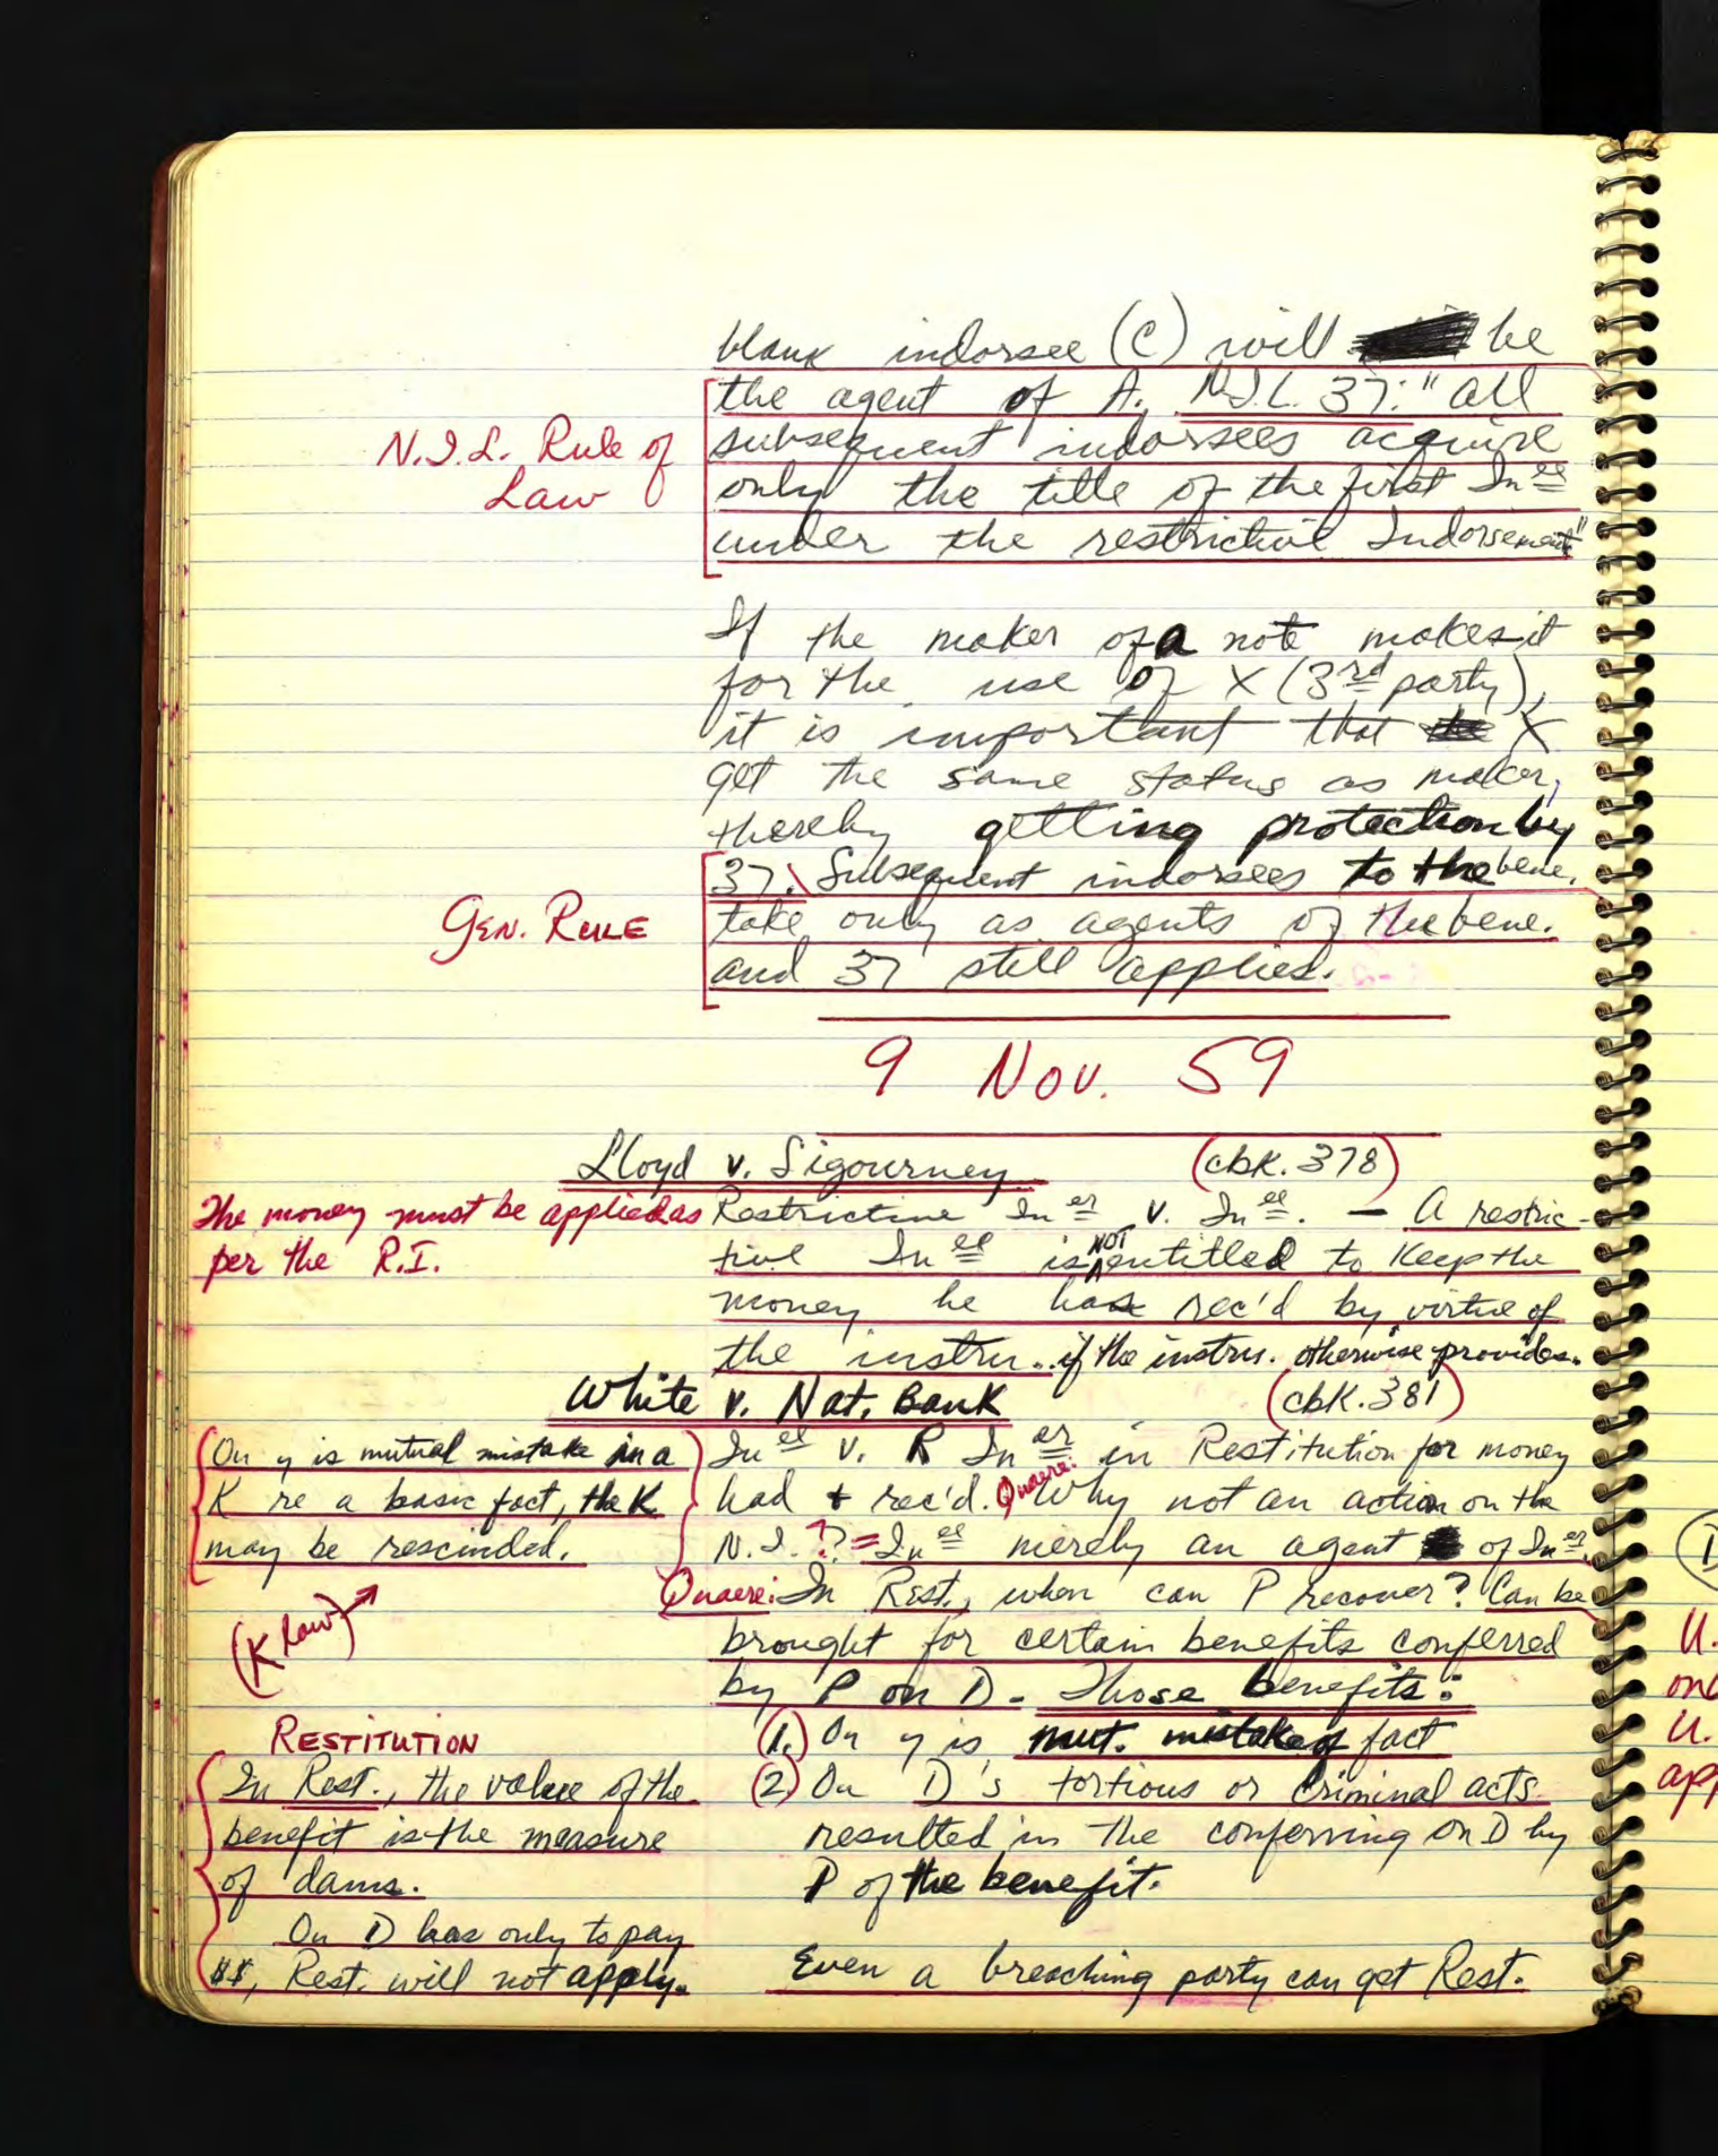 blank indorsee (C) will be
the agent of A. N.I.L. 37: "all
N.I.L. Rule of
Law
subsequent indorsees acquire
only the title of the first In ee
under the restrictive Indorsement"
If the maker of a note makes it
for the use of X (3rd party),
it is important that X
get the same status as maker,
thereby getting protection by
37. Subsequent indorsees to the bene.
GEN. RULE
take only as agents of the bene.
and 37 still applies.
9 Nov. 59
Lloyd v. Sigourney (cbk. 378)
The money must be applied as
per the R.I.
Restrictive In er v. In ee. — A restric-
tive In ee is NOT entitled to keep the
money he has rec'd by virtue of
the instru. if the instru. otherwise provides.
White v. Nat. Bank (cbk. 381)
On y is mutual mistake in a
K re a basic fact, the K
may be rescinded.
(K law)
In ee v. R In er in Restitution for money
had + rec'd. Quaere: Why not an action on the
N.I.? = In ee merely an agent of In er.
Quaere: In Rest., when can P recover? Can be
brought for certain benefits conferred
by P on D. Those benefits:
(1.) On y is mut. mistake of fact
(2) On D's tortious or criminal acts
resulted in the conferring on D by
P of the benefit.
RESTITUTION
In Rest., the value of the
benefit is the measure
of dams.
On D has only to pay
$$, Rest. will not apply.
Even a breaching party can get Rest.
U.
U.